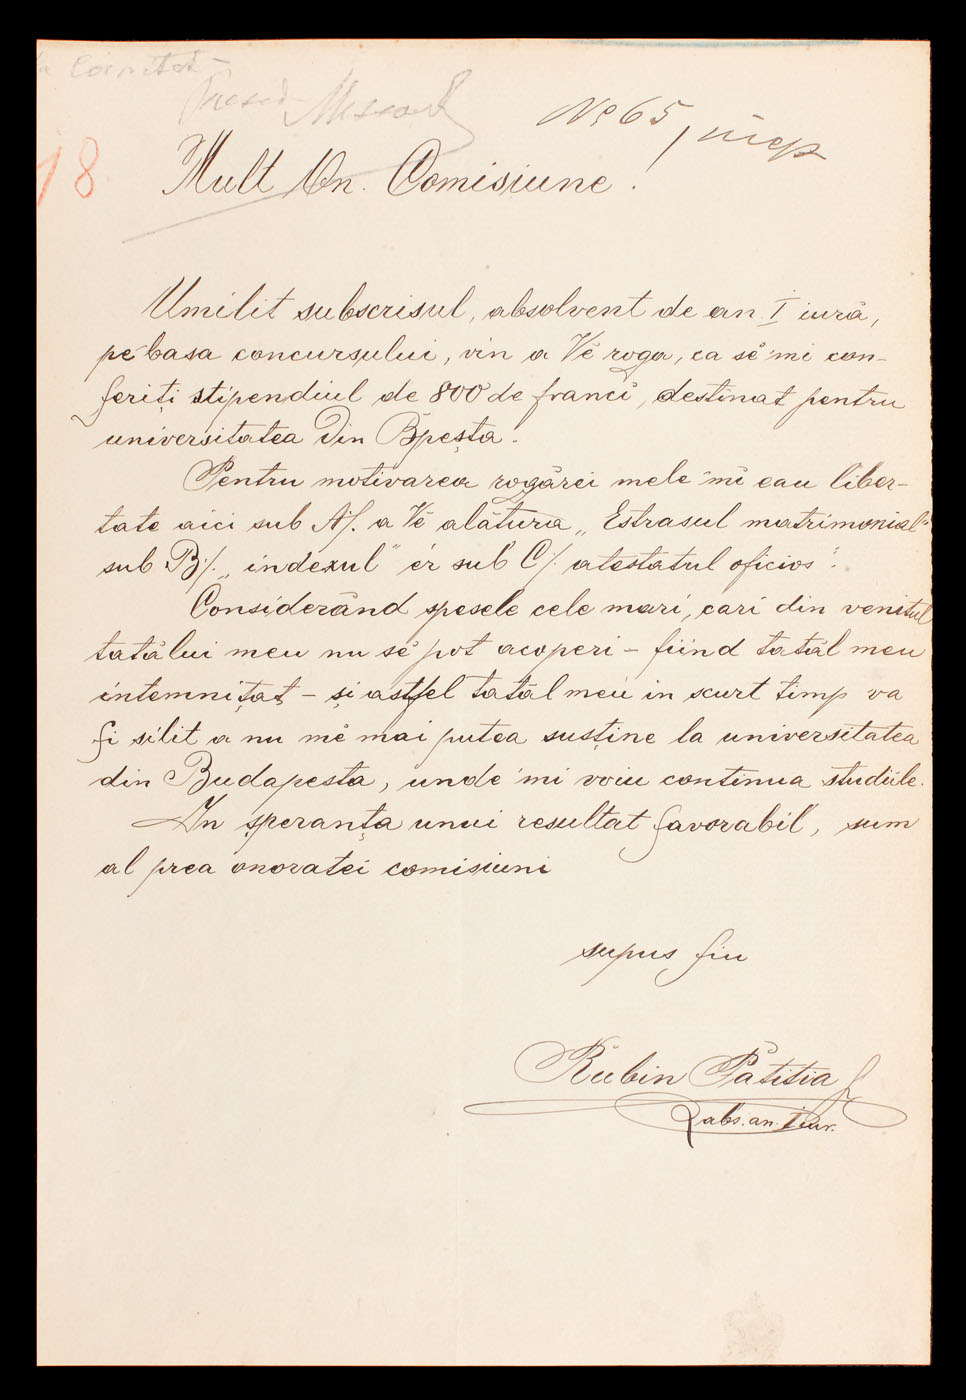 Comitet
No 65,
18
Mult On. Comisiune!
Umilit subscrisul, absolvent de an. I iură,
pe basa concursului, vin a Vĕ roga, ca sĕ-mi con-
feriți stipendiul de 800 de franci, destinat pentru
universitatea din Bpesta.
Pentru motivarea rogărei mele 'mi eau liber-
tate aici sub A/. a Vĕ alătura „Estrasul matrimonial"
sub B/. „indexul" ér sub C/. atestatul oficios".
Considerănd spesele cele mari, cari din venitul
tatălui meu nu sĕ pot acoperi – fiind tatăl meu
intemnițat – și astfel tatăl meu in scurt timp va
fi silit a nu mĕ mai putea susține la universitatea
din Budapesta, unde 'mi voiu continua studiile.
In speranța unui resultat favorabil, sum
al prea onoratei comisiuni
supus fiu
Rubin Patitia
abs. an. I iur.